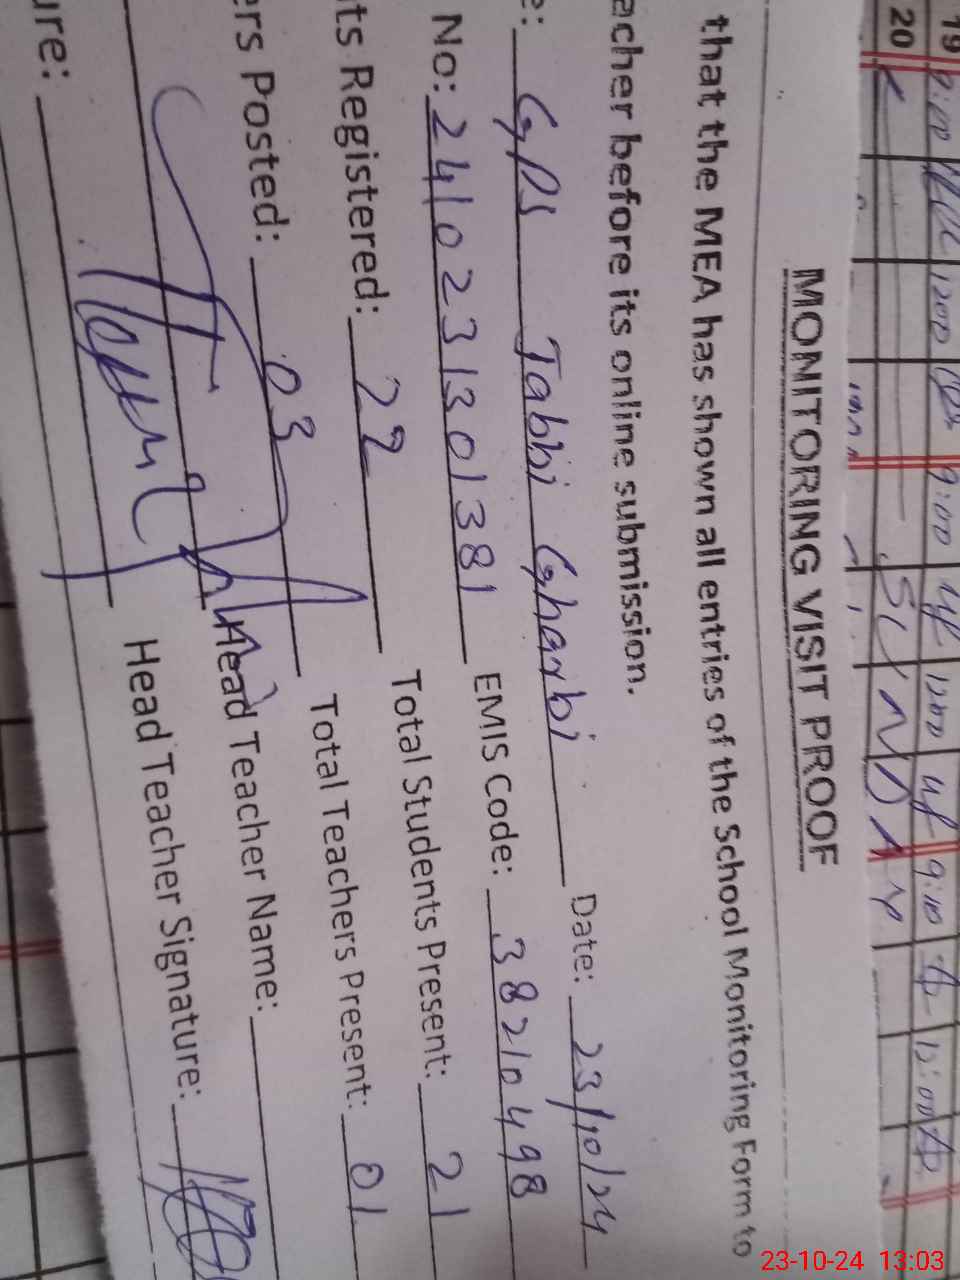 19 9:00 1200 9:00 1200 9:10 12:00
20 SUNDAY
MONITORING VISIT PROOF
that the MEA has shown all entries of the School Monitoring Form to
acher before its online submission.
e: GPS Tabbi Gharbi Date: 23/10/24
No: 2410231301381 EMIS Code: 38210498
ts Registered: 22 Total Students Present: 21
ers Posted: 03 Total Teachers Present: 01
Head Teacher Name:
ure: Head Teacher Signature:
23-10-24 13:03